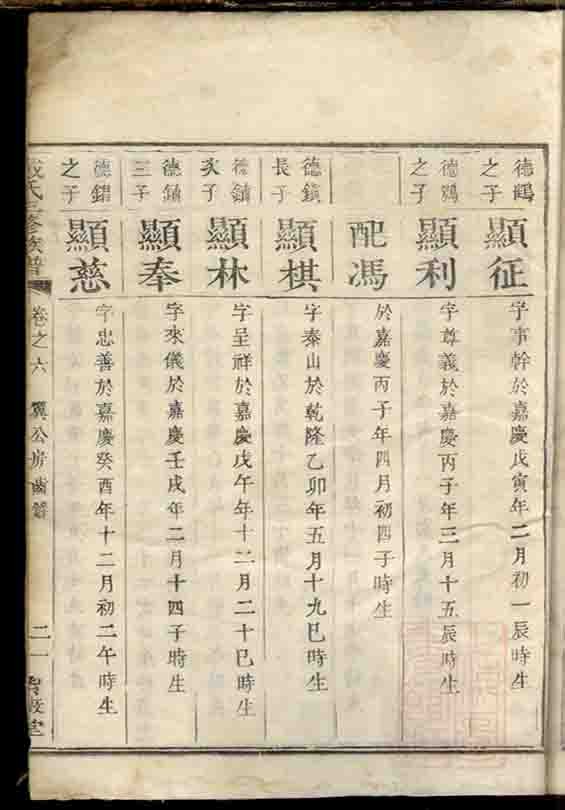 德鶴之子
顯征
字事幹於嘉慶戊寅年二月初一辰時生
德鴉之子
顯利
字尊義於嘉慶丙子年三月十五辰時生
配馮
於嘉慶丙子年四月初四子時生
德鎮長子
顯棋
字泰山於乾隆乙卯年五月十九巳時生
德鎮次子
顯林
字呈祥於嘉慶戊午年十二月二十巳時生
德鎮三子
顯奉
字來儀於嘉慶壬戌年二月十四子時生
德錯之子
顯慈
字忠善於嘉慶癸酉年十二月初二午時生
氏三修族譜
卷之六
翼公房齒譜
二一
敘堂